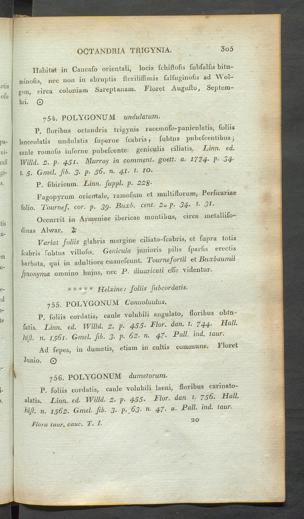 OCTANDRIA TRIGYNIA. 305
Habitat in Caucaso orientali, locis schistosis subsalsis bitu-
minosis, nec non in abruptis sterilissimis salsuginosis ad Wol-
gam, circa coloniam Sareptanam. Floret Augusto, Septem-
bri. ☉
754. POLYGONUM undulatum.
P. floribus octandris trigynis racemoso-paniculatis, foliis
lanceolatis undulatis superne scabris, subtus pubescentibus;
caule ramoso inferne pubescente: geniculis ciliatis. Linn. ed.
Willd. 2. p. 451. Murray in comment. goett. a. 1774. p. 34.
t. 5. Gmel. sib. 3. p. 56. n. 41. t. 10.
P. sibiricum. Linn. suppl. p. 228.
Fagopyrum orientale, ramosum et multiflorum, Persicariae
folio. Tournef. cor. p. 39. Buxb. cent. 2. p. 34. t. 31.
Occurrit in Armeniae ibericae montibus, circa metallifo-
dinas Alwar. ♃
Variat foliis glabris margine ciliato-scabris, et supra totis
scabris subtus villosis. Genicula junioris pilis sparsis erectis
barbata, qui in adultiore evanescunt. Tournefortii et Buxbaumii
synonyma omnino hujus, nec P. divaricati esse videntur.
***** Helxine: foliis subcordatis.
755. POLYGONUM Convolvulus.
P. foliis cordatis, caule volubili angulato, floribus obtu-
satis. Linn. ed. Willd. 2. p. 455. Flor. dan. t. 744. Hall.
hist. n. 1561. Gmel. sib. 3. p. 62. n. 47. Pall. ind. taur.
Ad sepes, in dumetis, etiam in cultis commune. Floret
Junio. ☉
756. POLYGONUM dumetorum.
P. foliis cordatis, caule volubili laevi, floribus carinato-
alatis. Linn. ed. Willd. 2. p. 455. Flor. dan. t. 756. Hall.
hist. n. 1562. Gmel. sib. 3. p. 63. n. 47. a. Pall. ind. taur.
Flora taur. cauc. T. I. 20